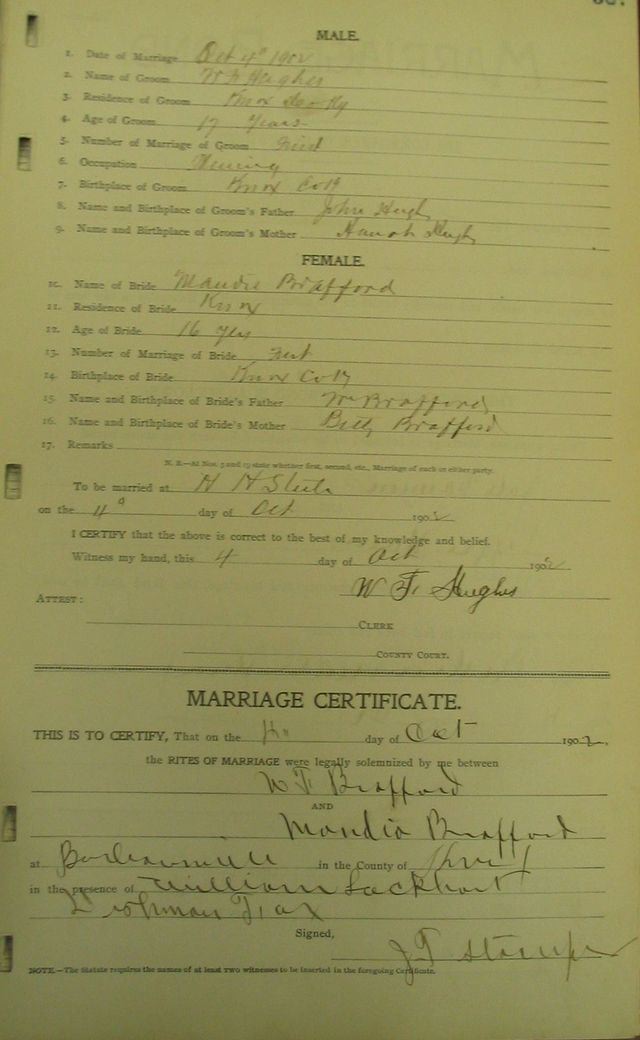 MALE.
1. Date of Marriage Oct 4th 1902
2. Name of Groom W F Hughes
3. Residence of Groom Knox Ky
4. Age of Groom 17 Years
5. Number of Marriage of Groom
6. Occupation
7. Birthplace of Groom Knox Co
8. Name and Birthplace of Groom's Father John Hugh
9. Name and Birthplace of Groom's Mother Hanah Hugh
FEMALE.
10. Name of Bride Maudie Brafford
11. Residence of Bride Knox
12. Age of Bride 16 yers
13. Number of Marriage of Bride
14. Birthplace of Bride Knox Co
15. Name and Birthplace of Bride's Father Wm Brafford
16. Name and Birthplace of Bride's Mother Brafford
17. Remarks
N. B.—At Nos. 5 and 13 state whether first, second, etc., Marriage of each or either party.
To be married at H H
on the 4 day of Oct 1902
I CERTIFY that the above is correct to the best of my knowledge and belief.
Witness my hand, this 4 day of Oct 1902
W F Hughes
ATTEST:
CLERK
COUNTY COURT.
MARRIAGE CERTIFICATE.
THIS IS TO CERTIFY, That on the day of Oct 1902,
the RITES OF MARRIAGE were legally solemnized by me between
W F Brafford
AND
Maudia Brafford
at in the County of
in the presence of William Lockhart
Signed,
J T Stamper
NOTE.—The Statute requires the names of at least TWO witnesses to be inserted in the foregoing Certificate.